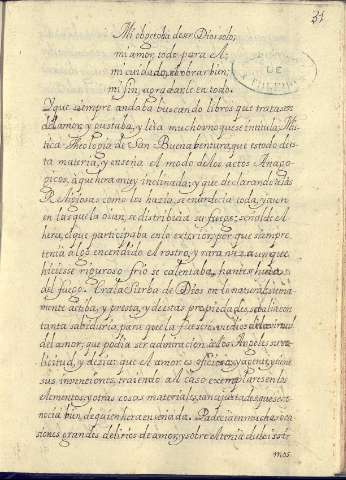 31
Mi obgeto ha de ser Dios solo;
mi amor, todo para el;
mi cuidado, el obrar bien;
mi fin, agradarle en todo.
Y que siempre andaba buscando libros que tratasen
del amor; y gustaba, y leia mucho vno que se intitula, Mis
tica Theologia de San Buenabentura, que es todo de es
ta materia, y enseña el modo de los actos Anago
gicos, a que hera muy inclinada; y que declarandoselos a
Religiosas como los hazia, se enardecia toda, y aun
en las que la oian, se distribuia su fuego: señal de el
hera, el que participaba en lo exterior, porque siempre
tenia algo encendido el rostro, y rara vez, aunque
hiciese riguroso frio se calentaba, hasta
del fuego. Era la Sierba de Dios en lo natural suma
mente actiba, y presta, y de estas propiedades, se balia con
tanta sabiduria, para que la fuesen medios de la virtud
del amor, que podia ser admiracion de los Angeles su so
licitud, y dezia: que el amor es oficioso, y agente, y tiene
sus invenciones, traiendo al caso exemplares en los
elementos, y otras cosas materiales, tan ajustadas, que se co
nocia bien, de quien hera enseñada. Padecia en muchas oca
siones grandes delirios de amor, y sobre el tenia dulcissi
mos